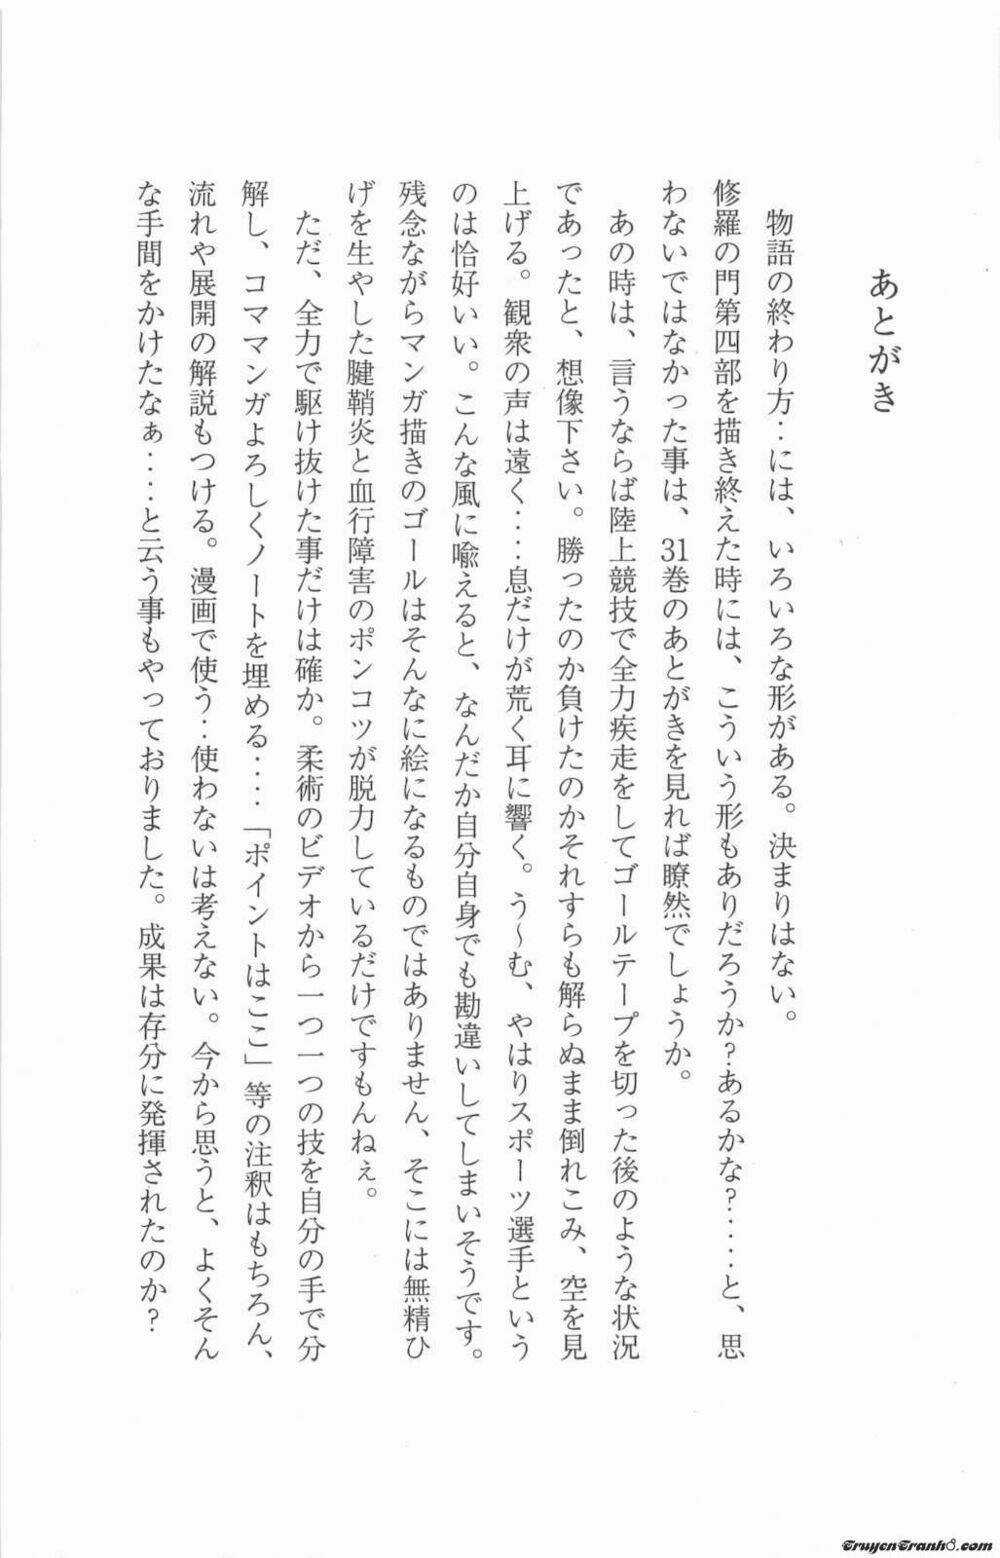 あとがき
物語の終わり方‥には、いろいろな形がある。決まりはない。
修羅の門第四部を描き終えた時には、こういう形もありだろうか?あるかな?‥‥‥と、思
わないではなかった事は、31巻のあとがきを見れば瞭然でしょうか。
あの時は、言うならば陸上競技で全力疾走をしてゴールテープを切った後のような状況
であったと、想像下さい。勝ったのか負けたのかそれすらも解らぬまま倒れこみ、空を見
上げる。観衆の声は遠く‥‥息だけが荒く耳に響く。う〜む、やはりスポーツ選手という
のは恰好いい。こんな風に喩えると、なんだか自分自身でも勘違いしてしまいそうです。
残念ながらマンガ描きのゴールはそんなに絵になるものではありません、そこには無精ひ
げを生やした腱鞘炎と血行障害のポンコツが脱力しているだけですもんねぇ。
ただ、全力で駆け抜けた事だけは確か。柔術のビデオから一つ一つの技を自分の手で分
解し、コママンガよろしくノートを埋める‥‥「ポイントはここ」等の注釈はもちろん、
流れや展開の解説もつける。漫画で使う‥使わないは考えない。今から思うと、よくそん
な手間をかけたなぁ‥‥と云う事もやっておりました。成果は存分に発揮されたのか?
TruyenTranh8.com